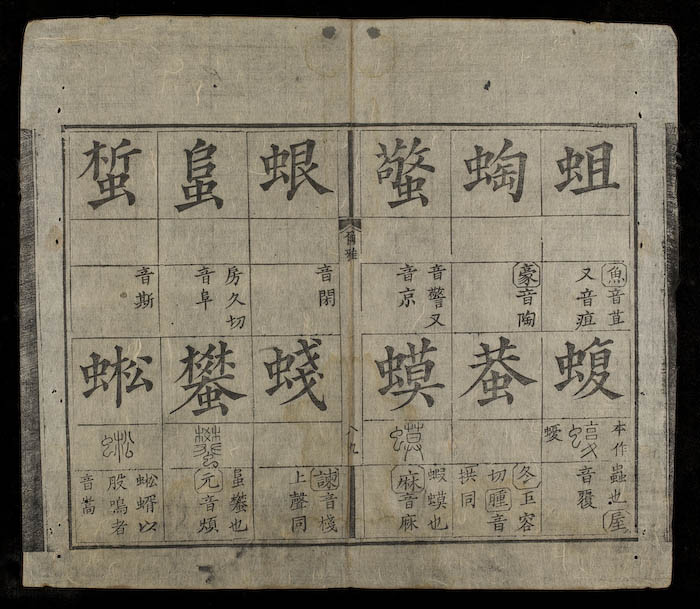 蛆
魚音苴
又音疽
蜪
豪音陶
蟼
音警又
音京
蝮
本作蟲也屋
音覆
蛬
冬巨容
切腫音
拱同
蟆
蝦蟆也
麻音麻
爾雅
八九
蛝
音閑
蛗
房久切
音阜
蜤
音撕
䗃
諫音棧
上聲同
蠜
蛗蠜也
元音煩
蜙
蜙蝑以
股鳴者
音嵩